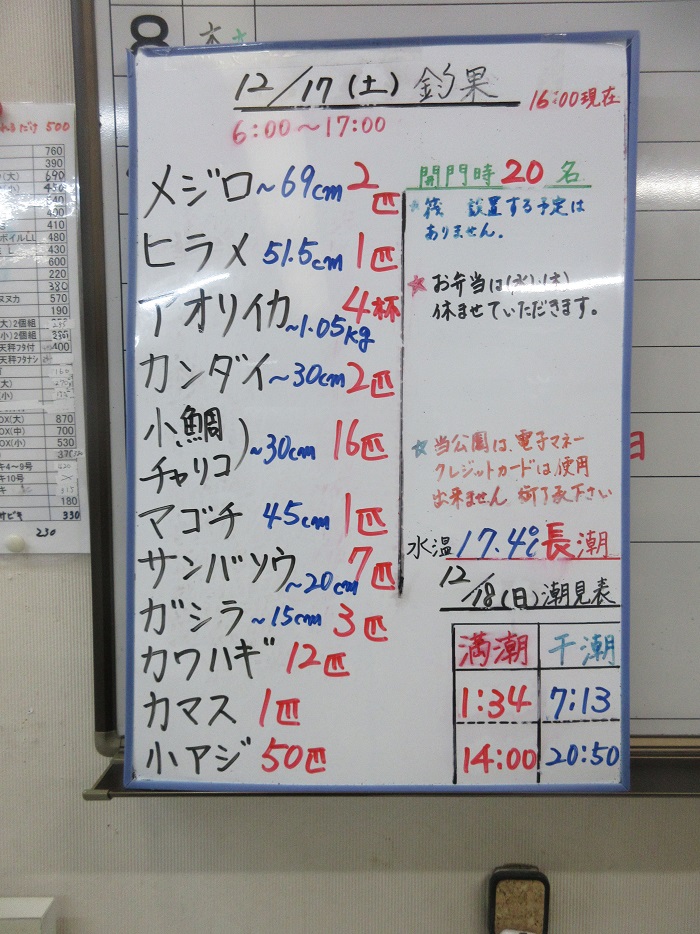 8
12/17(土)釣果
16:00現在
6:00～17:00
メジロ～69cm 2匹
ヒラメ 51.5cm 1匹
アオリイカ～1.05kg 4杯
カンダイ～30cm 2匹
小鯛
チャリコ)～30cm 16匹
マゴチ 45cm 1匹
サンバソウ～20cm 7匹
ガシラ～15cm 3匹
カワハギ 12匹
カマス 1匹
小アジ 50匹
開門時20名
★筏 設置する予定は
ありません。
★お弁当は(水)、(木)
休ませていただきます。
☆当公園は、電子マネー
クレジットカードは、使用
出来ません 御了承下さい
水温17.4℃ 長潮
12/18(日)潮見表
満潮 干潮
1:34 7:13
14:00 20:50
500
760
390
(大) 690
400
410
ボイルLL 480
LL 430
600
220
ヌカ 570
190
大)2個組
小)2個組
天秤フタ付 400
天秤フタナシ
(大)
(小)
OX(大) 870
OX(中) 700
OX(小) 530
キ4～9号
キ10号
180
330
230
日